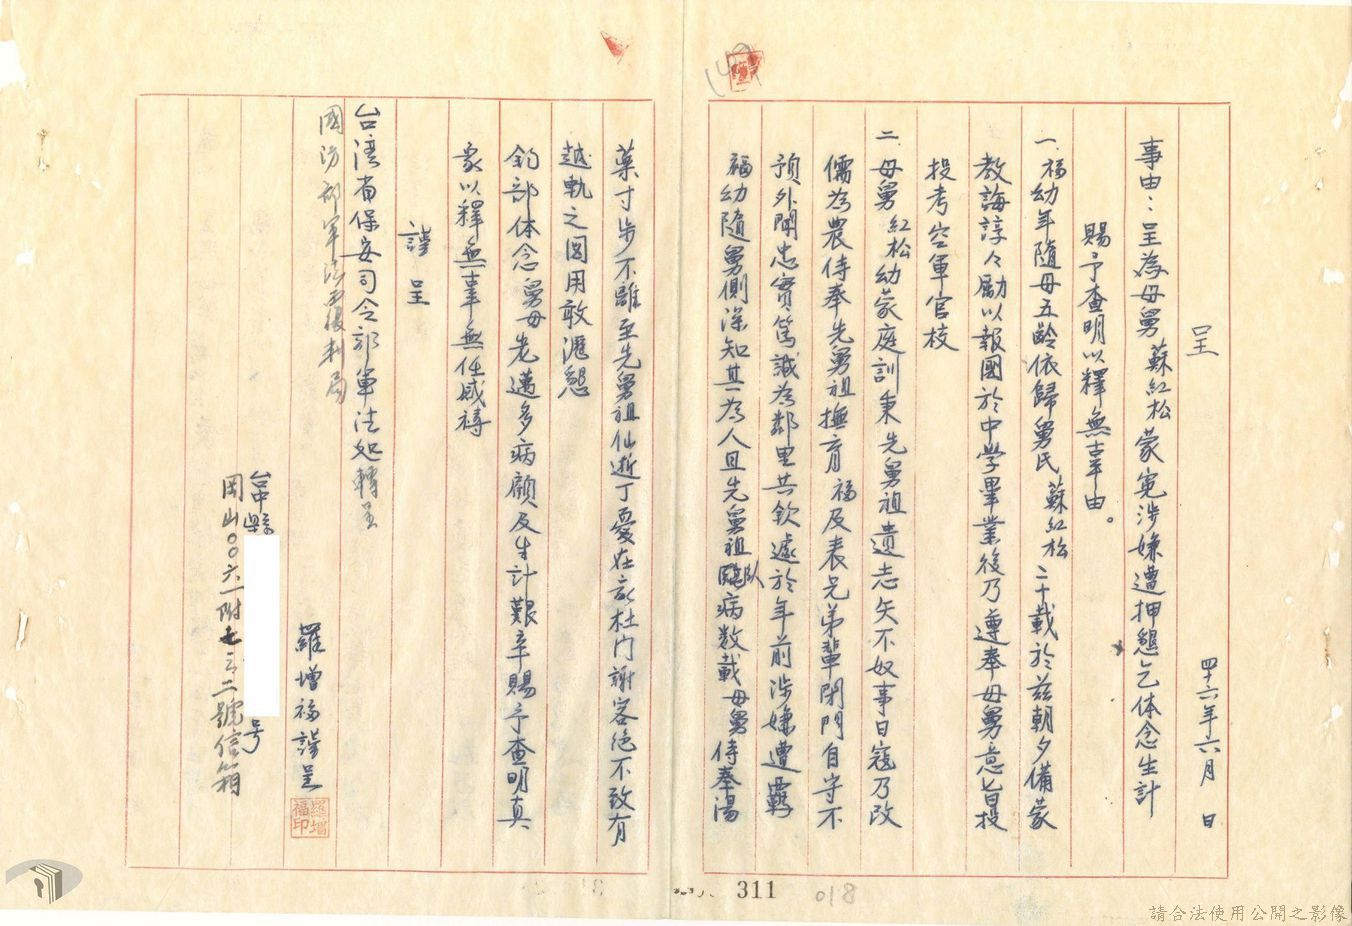 呈
四十六年六月 日
事由：呈為母舅蘇紅松蒙冤涉嫌遭押懇乞体念生計
賜予查明以釋無辜由。
一、福幼年隨母五齡依歸舅氏蘇紅松二十載於茲朝夕備蒙
教誨諄々勵以報國於中學畢業後乃遵奉母舅意旨投
投考空軍官校
二、母舅紅松幼蒙庭訓秉先舅祖遺志矢不奴事日寇乃改
儒為農侍奉先舅祖撫育福及表兄弟輩閉門自守不
預外聞忠實篤誠為鄰里共欽遽於年前涉嫌遭羈
福幼隨舅側深知其為人且先舅祖臥病数載母舅侍奉湯
藥寸步不離至先舅祖仙逝丁憂在家杜門謝客絕不致有
越軌之圖用敢瀝懇
鈞部体念舅母老邁多病顧及生計艱辛賜予查明真
象以釋無辜無任感禱
謹呈
台湾省保安司令部軍法処轉呈
國防部軍法覆判局
羅增福謹呈
羅增福印
台中縣 号
岡山００六一附七之二號信箱
311
810
請合法使用公開之影像